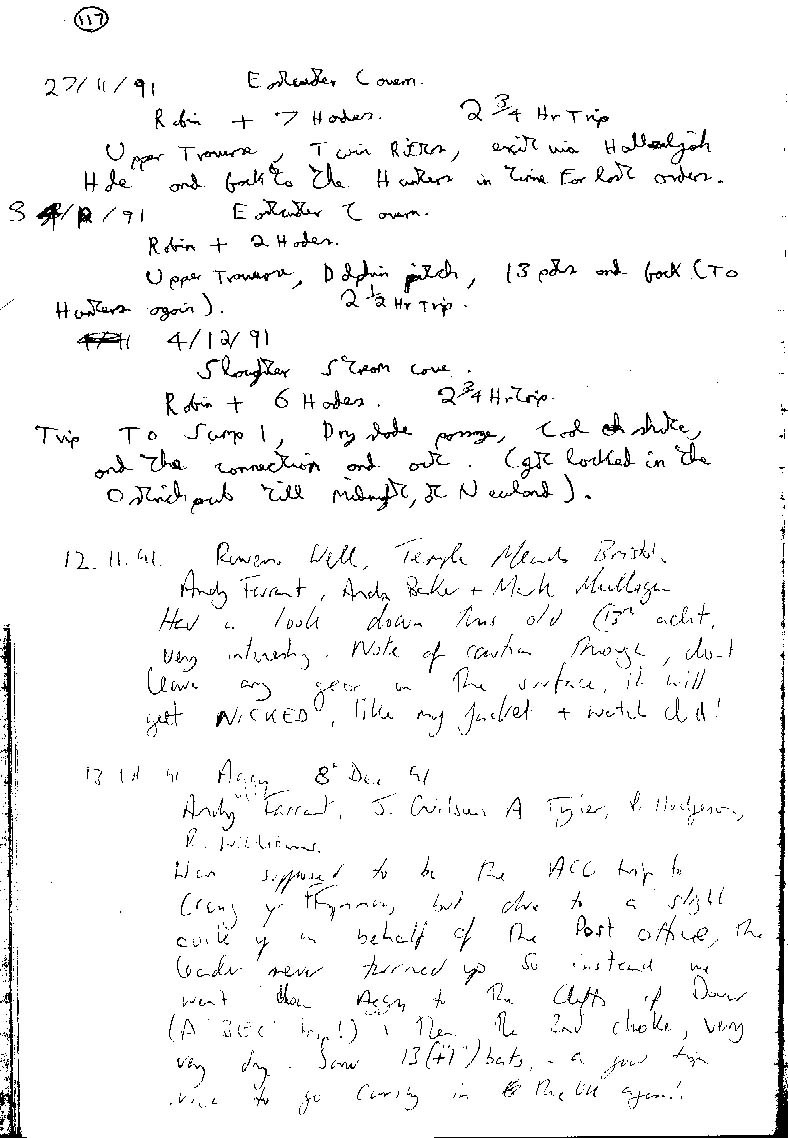 117
27/11/91 Eastwater Cavern.
Robin + 7 Hades. 2 3/4 Hr Trip
Upper Traverse, Twin Riters, exit via Halleluljah
Hole and back to the Hunters in time For last orders.
3 /12/91 Eastwater Cavern.
Robin + 2 Hades.
Upper Traverse, Dolphin pitch, 13 pots and back (To
Hunters again). 2 1/2 Hr Trip.
4/12/91
Slaughter Stream cave.
Robin + 6 Hades. 2 3/4 Hr trip.
Trip To Sump 1, Dry slade passage, Coal
and the connection and out. (got locked in the
Ostrich pub till midnight, at Newland).
12.11.91. Well, Temple Meads Bristol.
Andy Farrant, Andy Baker + Mark Mulligan
Had a look down this old C13th adit,
very interesting. Note of caution though, don't
leave any gear on the surface, it will
get NICKED, like my jacket + watch did!
13 91 Aggy 8th Dec 91
Andy Farrant, J. A Tyler, R. Hodgeson,
R. Williams.
Was supposed to be the ACG trip to
Craig yr Ffynnon, but due to a slight
cock up on behalf of the Post office, the
leader never turned up so instead we
went down Aggy to the Cliffs of Dover
(A BEC trip!) , then the 2nd choke, very
very dry. Saw 13(+1) bats, - a good trip
nice to go caving in the UK again!